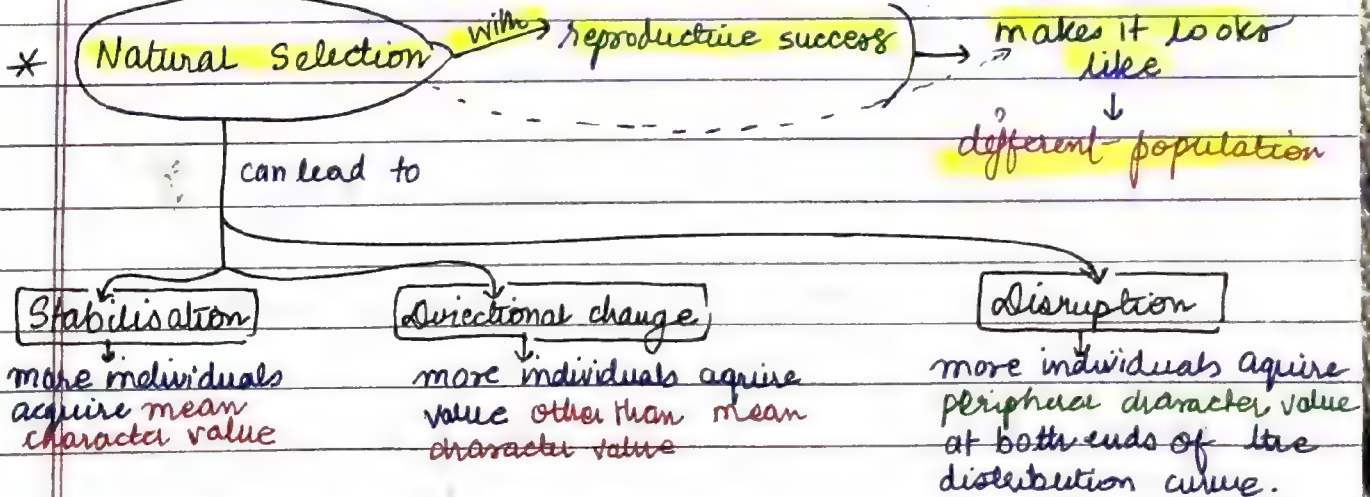 * Natural Selection with reproductive success makes it looks
like
different population
can lead to
Stabilisation
more individuals
acquire mean
character value
Directional change
more individuals aquire
value other than mean
character value
Disruption
more individuals aquire
peripheral character value
at both ends of the
distribution curve.